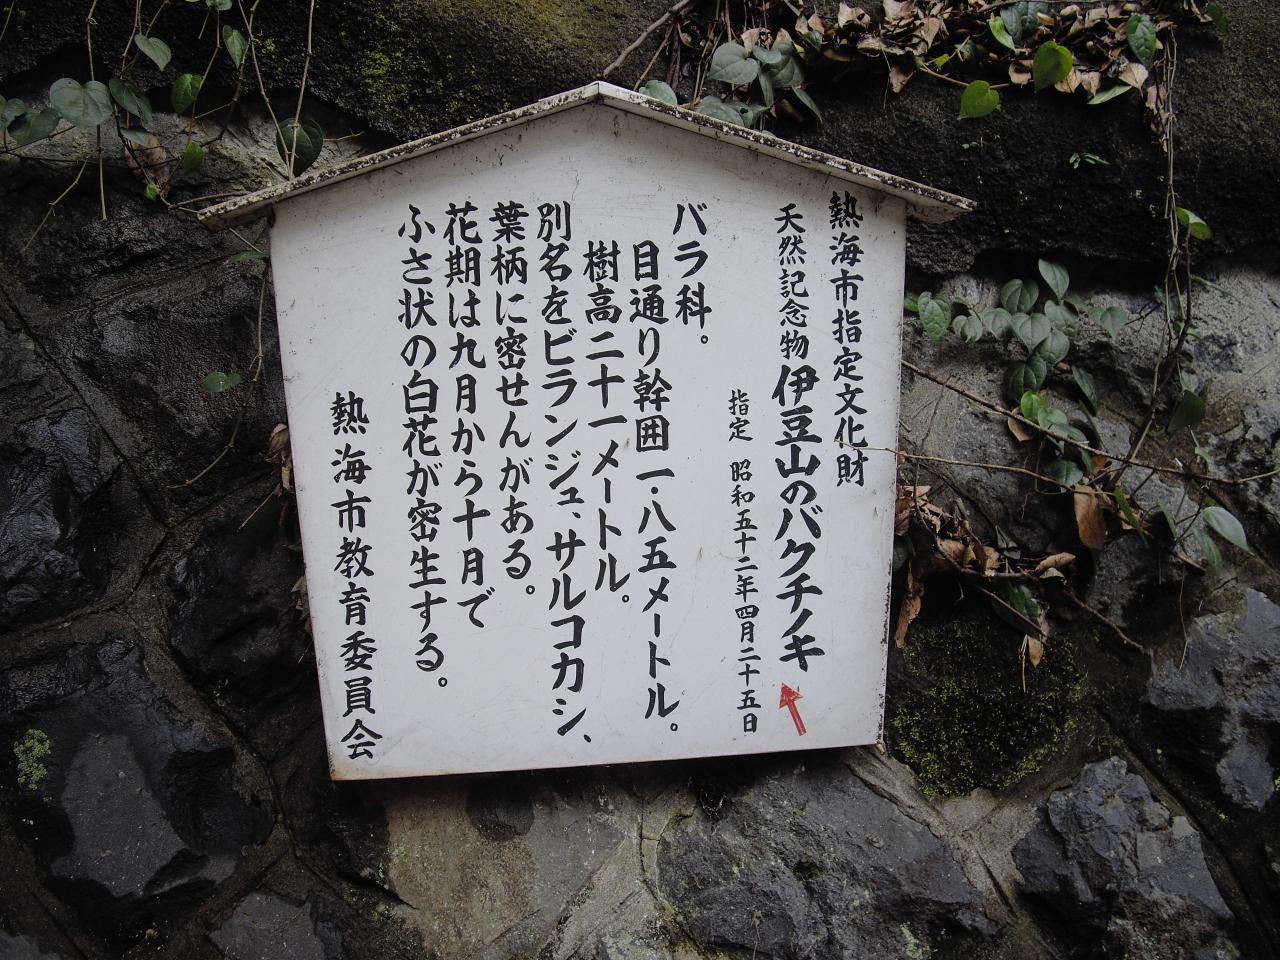 熱海市指定文化財
天然記念物 伊豆山のバクチノキ
指定 昭和五十二年四月二十五日
バラ科。
目通り幹囲一・八五メートル。
樹高二十一メートル。
別名をビランジュ、サルコカシ、
葉柄に密せんがある。
花期は九月から十月で
ふさ状の白花が密生する。
熱海市教育委員会